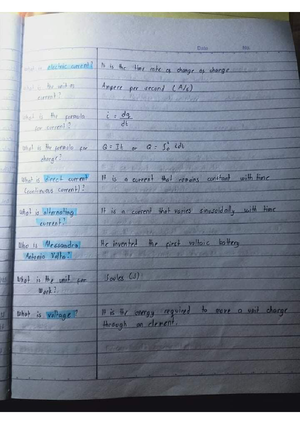 Date No.
What is electric current? It is the time rate of change of charge
What is the unit of Ampere per second (A/s)
current?
What is the formula i = dq/dt
for current?
What is the formula for Q = It or Q = ∫ idt
charge?
What is direct current It is a current that remains constant with time
(continuous current)?
What is alternating It is a current that varies sinusoidally with time
current?
Who is Alessandro He invented the first voltaic battery
Antonio Volta?
What is the unit for Joules (J)
Work?
What is voltage? It is the energy required to move a unit charge
through an element.